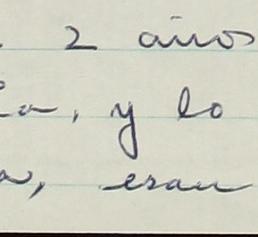 . 2 años
ía, y lo
a, eran